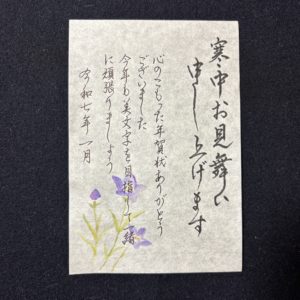 寒中お見舞い
申し上げます
心のこもった年賀状ありがとう
ございました
今年も美文字を目指して一緒
に頑張りましょう
令和七年一月